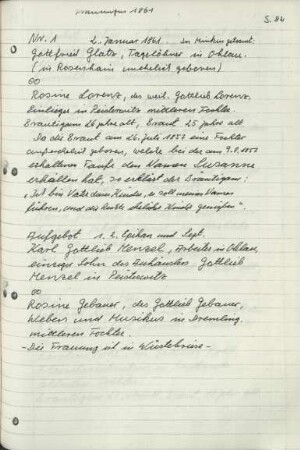 Trauungen 1861
S. 84
Nr. 1 2. Januar 1861. in Minken getraut:
Gottfried Glatz, Tagelöhner in Ohlau.
(in Rosenhain unehelich geboren)
∞
Rosine Lorenz, des weil. Gottlieb Lorenz,
Einlieger in Peisterwitz mittleren Tochter.
Bräutigam 26 Jahre alt, Braut 25 Jahre alt.
Da die Braut am 26. Juli 1857 eine Tochter
außerehelich geboren, welche bei der am 9.8.1857
erhaltenen Taufe den Namen Susanne
erhalten hat, so erklärt der Bräutigam:
"Ich bin Vater dieses Kindes, es soll meinen Namen
führen, und die Rechte ehelicher Kinder genießen".
Aufgebot 1. 2. Epiphan und Sept.
Karl Gottlieb Menzel, Arbeiter in Ohlau,
einziger Sohn des Auenhäuslers Gottlieb
Menzel in Peisterwitz
∞
Rosine Gebauer, des Gottlieb Gebauer,
Webers und Musikus in Dremling.
mittleren Tochter.
- Die Trauung ist in Wüstebriese -